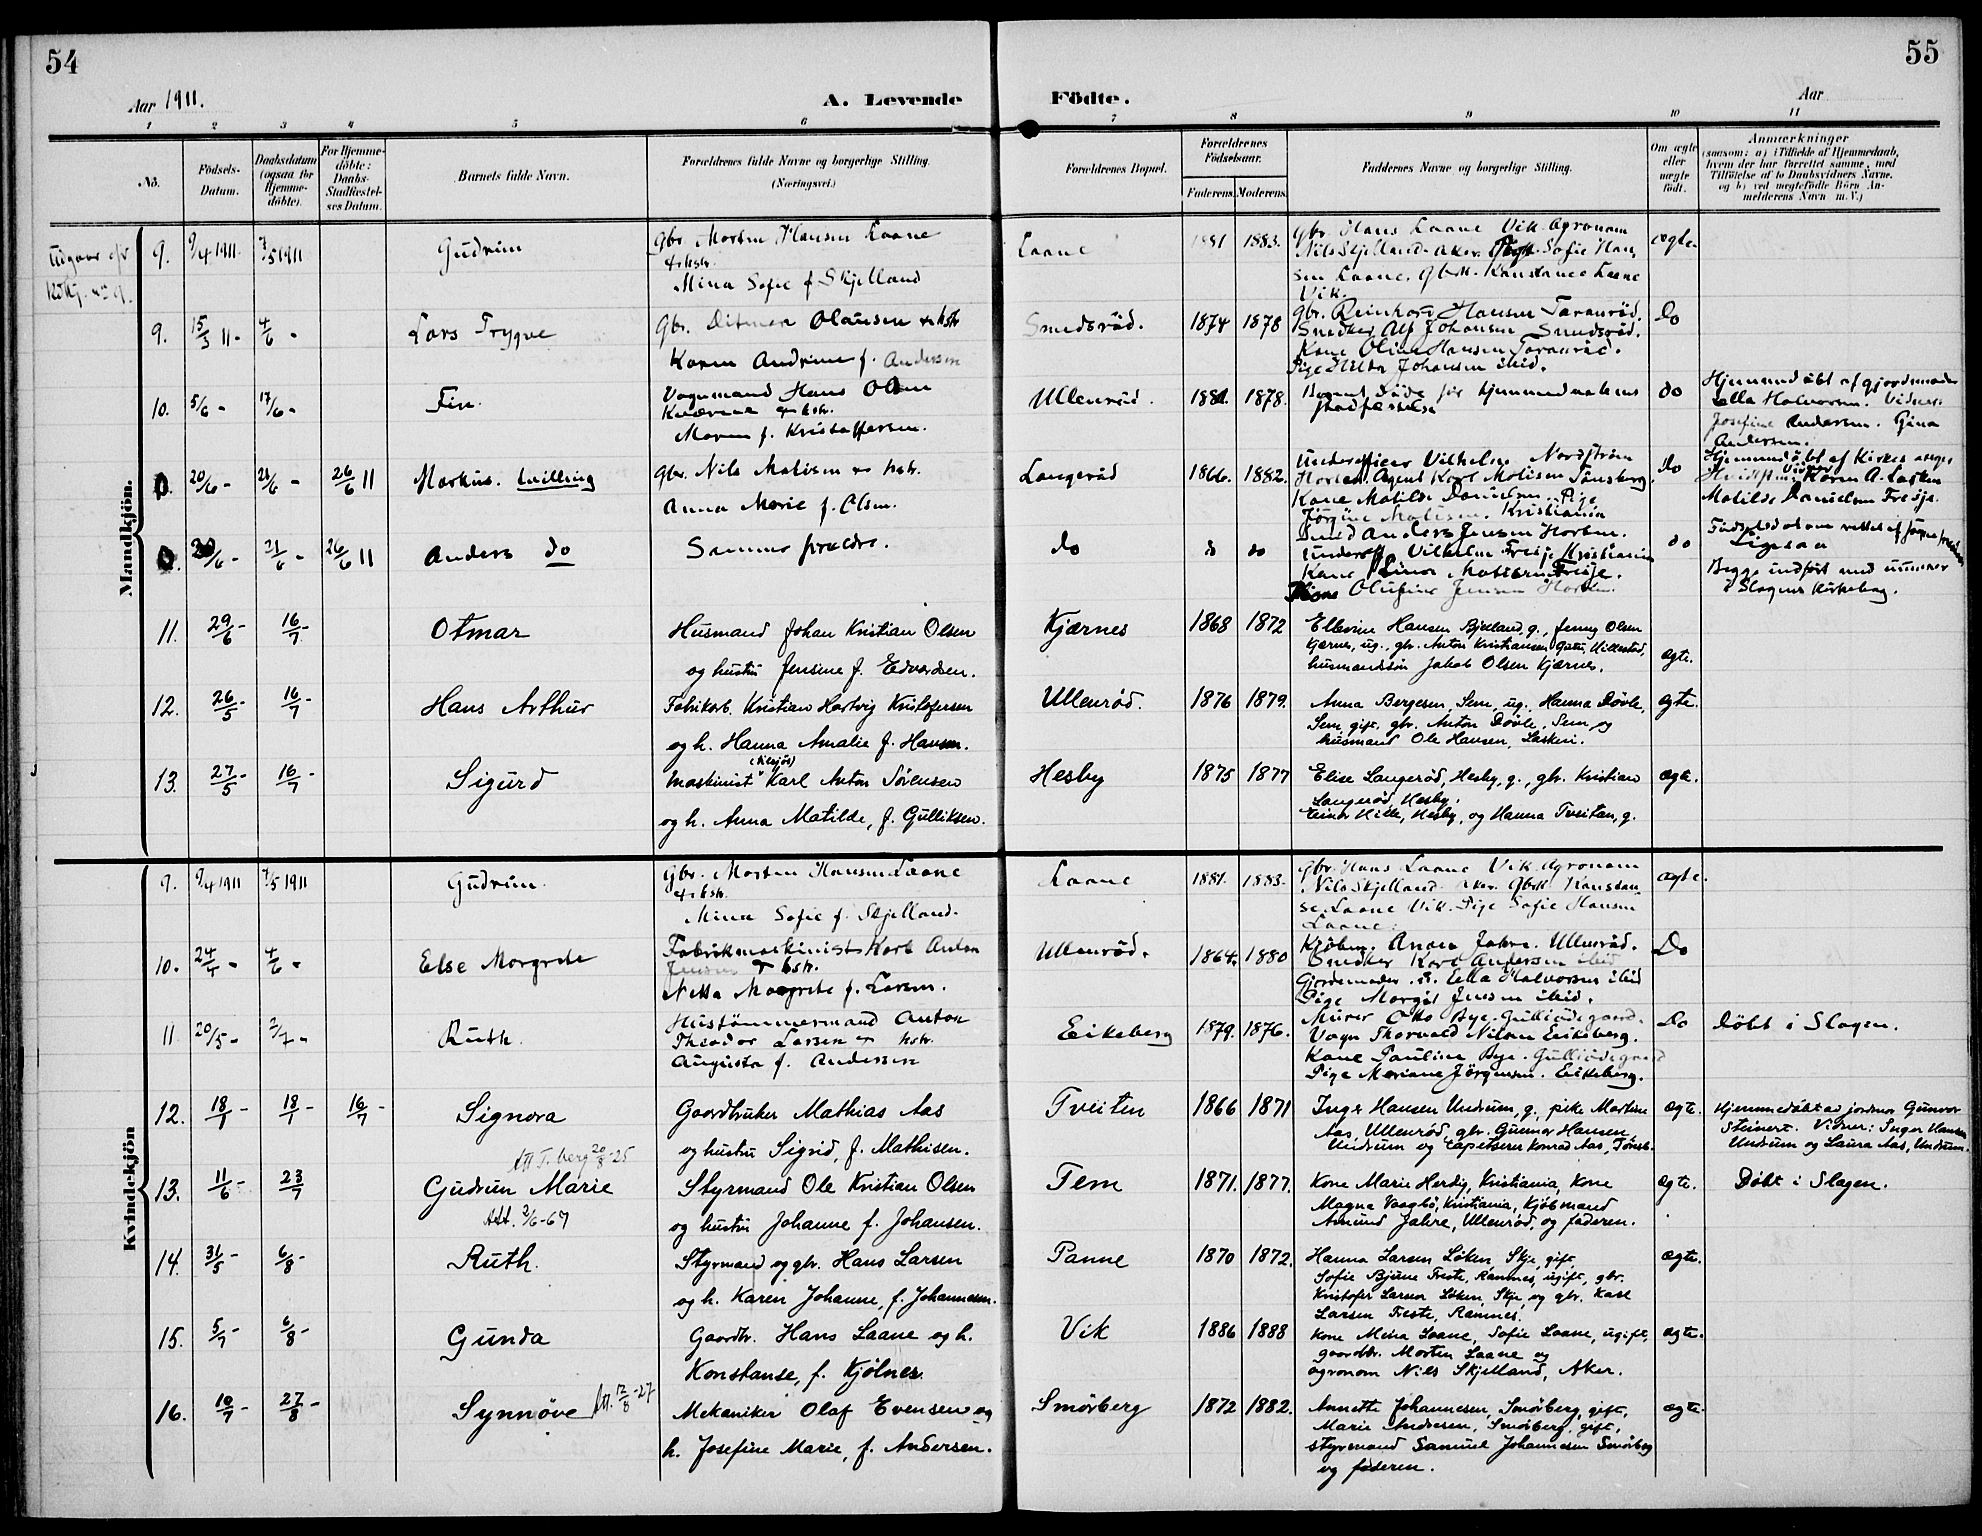 54
55
Aar 1911.
A. Levende Födte.
Aar
1 2 3 4 5 6 7 8 9 10 11
No.
Födsels-
Datum.
Daabsdatum
(ogsaa for
Hjemme-
döbte).
For Hjemme-
döbte:
Daabs-
Stadfæstel-
ses Datum.
Barnets fulde Navn.
Forældrenes fulde Navne og borgerlige Stilling.
(Næringsvei.)
Forældrenes Bopæl.
Forældrenes
Födselsaar.
Faderens. Moderens.
Faddernes Navne og borgerlige Stilling.
Om ægte
eller
uægte
födt.
Anmærkninger
(saasom: a) i Tilfælde af Hjemmedaab,
hvem der har forrettet samme, med
Tilföielse af to Daabsvidners Navne,
og b) ved uægtefödte Börn An-
melderens Navn m. V.)
Mandkjön.
Udgaar
9. 9/4 1911. 7/5 1911 Gudrun
Gbr. Morten Hansen Laane
& hstr.
Mina Sofie f Skjelland
Laane 1881 1883.
Gbr Hans Laane Vik Agronom
Nils Skjelland Aker. Sofie Han
sen Laane. Konstance Laane
Vik.
ægte.
9. 15/3 11 - 4/6 - Lars Trygve
Gbr. Ditmar Olausen & hstr
Karen Andrine f. Andersen
Smedsröd. 1874 1878
Gbr. Reinhart Hansen Taranröd.
Snedker Alf Johansen Smedsröd.
Kone Oline Hansen Taranröd.
Pige Hilda Johansen ibid.
Do
10. 5/6 - 17/6 - Fin.
Vognmand Hans Olsen
& hstr.
Maren f. Kristoffersen.
Ullenröd. 1881. 1878.
Barnet döde för hjemmedaabens
stadfæstelse
do
Hjemmedöbt af gjordemoder
Ella Halvorsen. Vidner:
Josefine Andersen. Gina
Andersen.
20/6 - 21/6 - 26/6 11 Markus. tvilling
Gbr. Nils Matisen & hstr.
Anna Marie f. Olsen.
Langeröd 1866. 1882.
Underofficer Vilhelm Nordström
Horten. Agent Karl Matisen Tönsberg.
Kone Matilde Danielsen. Pige
Jörgine Matisen. Kristiania
do
Hjemmedöbt af Kirkesanger
Vidner Karen A. Larsen
Matilde Danielsen Freöje.
20/6 - 21/6 - 26/6 11 Anders do
Samme forældre.
do do do
Anders Jensen Horten.
Underoff. Vilhelm Kristiania
Kone Lina Matisen
Kone Olufine Jensen Horten.
do
Födselsdatum rettet af
Ligesaa
Begge indfört med nummer
i Slagens Kirkebog.
11. 29/6 - 16/7 - Otmar
Husmand Johan Kristian Olsen
og hustru Jensine f. Edvardsen.
Kjærnes 1868 1872
Ellevine Hansen Bjelland, g., Jenny Olsen
Kjærnes, ug., gbr. Anton Kristiansen Gutu, Villestad,
husmandssön Jakob Olsen Kjærnes.
ægte.
12. 26/5 - 16/7 - Hans Arthur
Fabrikarb. Kristian Hartvig Kristofersen
og h. Hanna Amalie f. Hansen.
Ullenröd. 1876 1879.
Anna Bergesen, Sem, ug. Hanna Dövle,
Sem, gift, gbr. Anton Dövle, Sem og
husmand Ole Hansen, Laskeri.
ægte.
13. 27/5 - 16/7 - Sigurd
Maskinist (tilsjös) Karl Anton Sörensen
og h. Anna Matilde, f. Gulliksen.
Hesby 1875 1877
Elise Langeröd, Hesby, g., gbr. Kristian
Langeröd, Hesby.
Einar Hille, Hesby, og Hanna Tveitan, g.
ægte.
Kvindekjön
9. 9/4 1911 7/5 1911 Gudrun.
Gbr. Morten Hansen Laane
& hstr.
Mina Sofie f. Skjelland.
Laane 1881. 1883.
Gbr. Hans Laane Vik. Agronom
Nils Skjelland Aker. Gbrk Konstan
se Laane Vik. Pige Sofie Hansen
Laane.
ægte.
10. 24/4 - 4/6 - Else Margrete
Fabrikmaskinist Karl Anton
Jensen & hstr.
Netta Margrete f. Larsen.
Ullenröd. 1864. 1880
Kjöbm. Anders Jahre. Ullenröd.
Snedker Karl Andersen ibid
Gjordemoder Ella Halvorsen ibid
Pige Margit Jensen ibid.
Do
11 20/5 - 2/7 - Ruth.
Hustömmermand Anton
Theodor Larsen & hstr.
Augusta f. Andersen
Eikeberg 1879. 1876.
Murer Otto Bye. Gulliödegaard.
Vogn Thorvald Nilsen Eikeberg.
Kone Pauline Bye. Gulliödegaard
Pige Mariane Jörgensen. Eikeberg.
Do
Döbt i Slagen.
12. 18/1 - 18/1 - 16/7 - Signora
Gaardbruker Mathias Aas
og hustru Sigrid, f. Mathisen.
Tveiten 1866 1871
Inga Hansen Undrum, g., pike Martine
Aas, Ullenröd, gbr. Gunnar Hansen
Undrum og tapetserer Konrad Aas, Tönsb.
ægte.
Hjemmedöbt av jordmor Gunvor
Steinert. Vidner: Inger Hansen
Undrum og Laura Aas, Undrum.
Att T.berg 20/8-25
13. 11/6 - 23/7 Gudrun Marie
Att. 2/6-67
Styrmand Ole Kristian Olsen
og hustru Johanne f. Johansen.
Tem 1871. 1877.
Kone Marie Herdig, Kristiania, kone
Magna Vaagbö, Kristiania, Kjöbmand
Amund Jahre, Ullenröd, og faderen.
ægte.
Döbt i Slagen.
14. 31/5 - 6/8 - Ruth.
Styrmand og gbr. Hans Larsen
og h. Karen Johanne, f. Johannesen.
Panne 1870 1872.
Hanna Larsen Löken, Skje, gift,
Sofie Bjune Freste, Ramnes, ugift, gbr.
Kristofer Larsen Löken, Skje, og gbr. Karl
Larsen Freste, Ramnes.
ægte.
15. 5/7 - 6/8 - Gunda
Gaardbr. Hans Laane og h.
Konstanse, f. Kjölner.
Vik 1886 1888
Kone Mina Laane, Sofie Laane, ugift,
gaardbr. Morten Laane og
agronom Nils Skjelland, Aker.
ægte.
16. 10/7 - 27/8 - Synnöve Att. 12/8-27
Mekaniker Olaf Evensen og
h. Josefine Marie, f. Andersen.
Smörberg 1872 1882.
Annette Johannesen, Smörberg, gift,
Marie Andresen, Smörberg, gift,
styrmand Samuel Johannesen Smörberg
og faderen.
ægte.